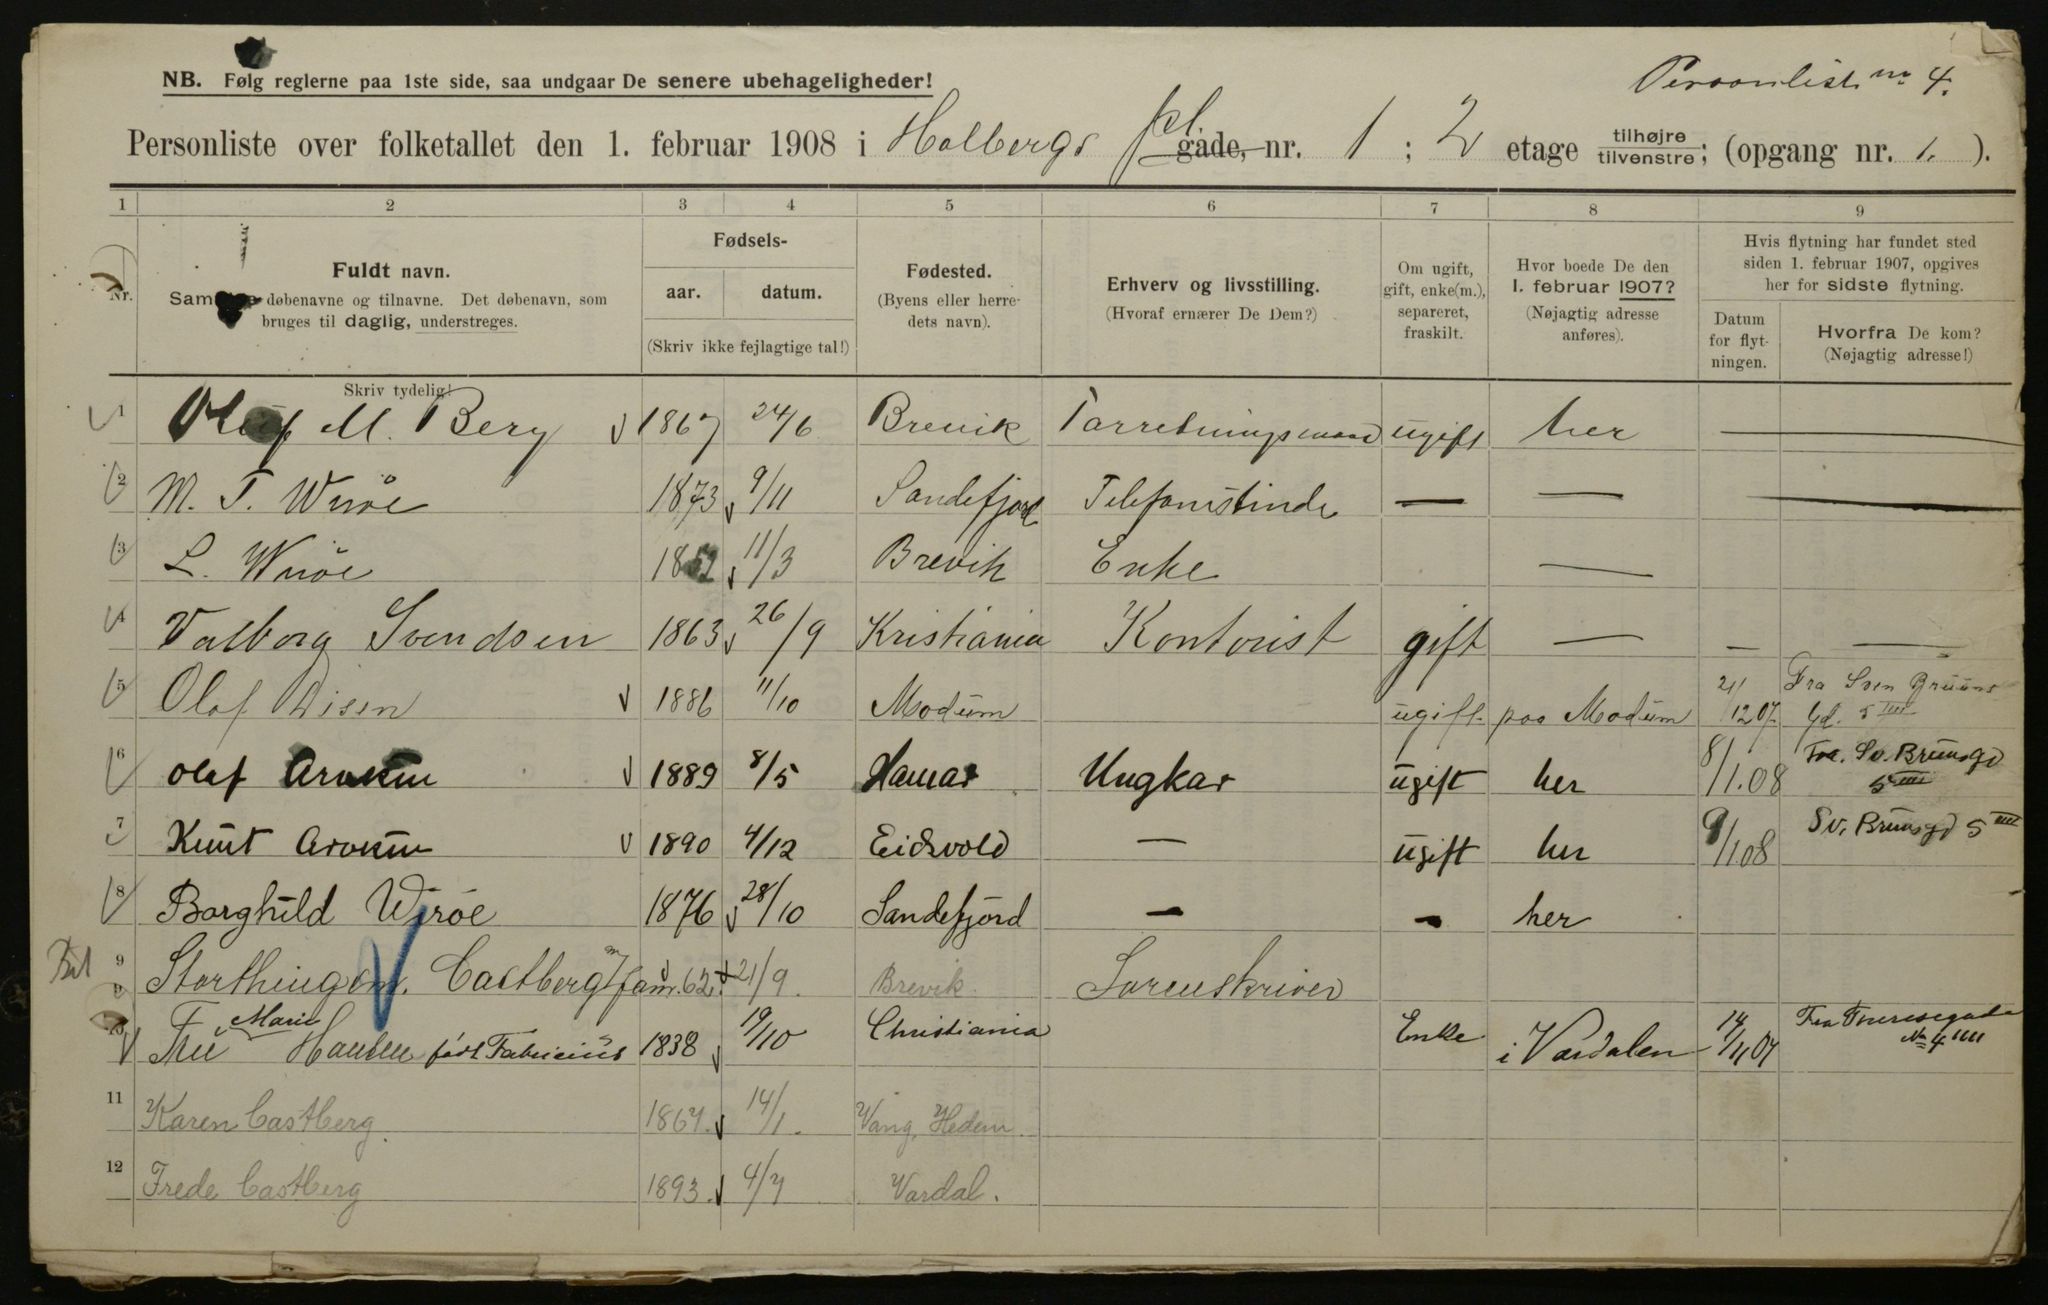 Personlist nr. 4.
NB. Følg reglerne paa 1ste side, saa undgaar De senere ubehageligheder!
Personliste over folketallet den 1. februar 1908 i Holbergs pl. gade, nr. 1 ; 2 etage tilhøjre tilvenstre ; (opgang nr. 1. ).
1 2 3 4 5 6 7 8 9
Nr.
Fuldt navn.
døbenavne og tilnavne. Det døbenavn, som
bruges til daglig, understreges.
Skriv tydelig!
Fødsels-
aar. datum.
(Skriv ikke fejlagtige tal!)
Fødested.
(Byens eller herre-
dets navn).
Erhverv og livsstilling.
(Hvoraf ernærer De Dem?)
Om ugift,
gift, enke(m.),
separeret,
fraskilt.
Hvor boede De den
1. februar 1907?
(Nøjagtig adresse
anføres).
Hvis flytning har fundet sted
siden 1. februar 1907, opgives
her for sidste flytning.
Datum
for flyt-
ningen.
Hvorfra De kom?
(Nøjagtig adresse!)
1 Oluf M. Berg 1867 24/6 Brevik Forretningsmand ugift her —
2 M. T. Wirøe 1873 9/11 Sandefjord Telefonistinde — — —
3 L. Wirøe 1852 11/3 Brevik Enke —
4 Valborg Svendsen 1863 26/9 Kristiania Kontorist gift — — —
5 Olaf Disen 1886 11/10 Modum ugift paa Modum 21/12 07 Fra Sven Bruuns
gd. 5 III
6 Olaf 1889 8/5 Hamar Ungkar ugift her 8/1.08 Fra. Sv. Brunsgd
5 III
7 Knut 1890 4/12 Eidsvold — ugift her 9/1 08 Sv. Brunsgd 5 III
8 Borghild Wirøe 1876 28/10 Sandefjord — — her
9 Storthingsm. Castberg m/fam. 62 21/9 Brevik. Sorenskriver
10 Fru Marie Hansen født Fabricius 1838 19/10 Christiania Enke i Vardalen 14/11 07 Fra Theresegade
No 4 IIII
11 Karen Castberg 1867 14/1. Vang, Hedem.
12 Frede Castberg 1893 4/7 Vardal.